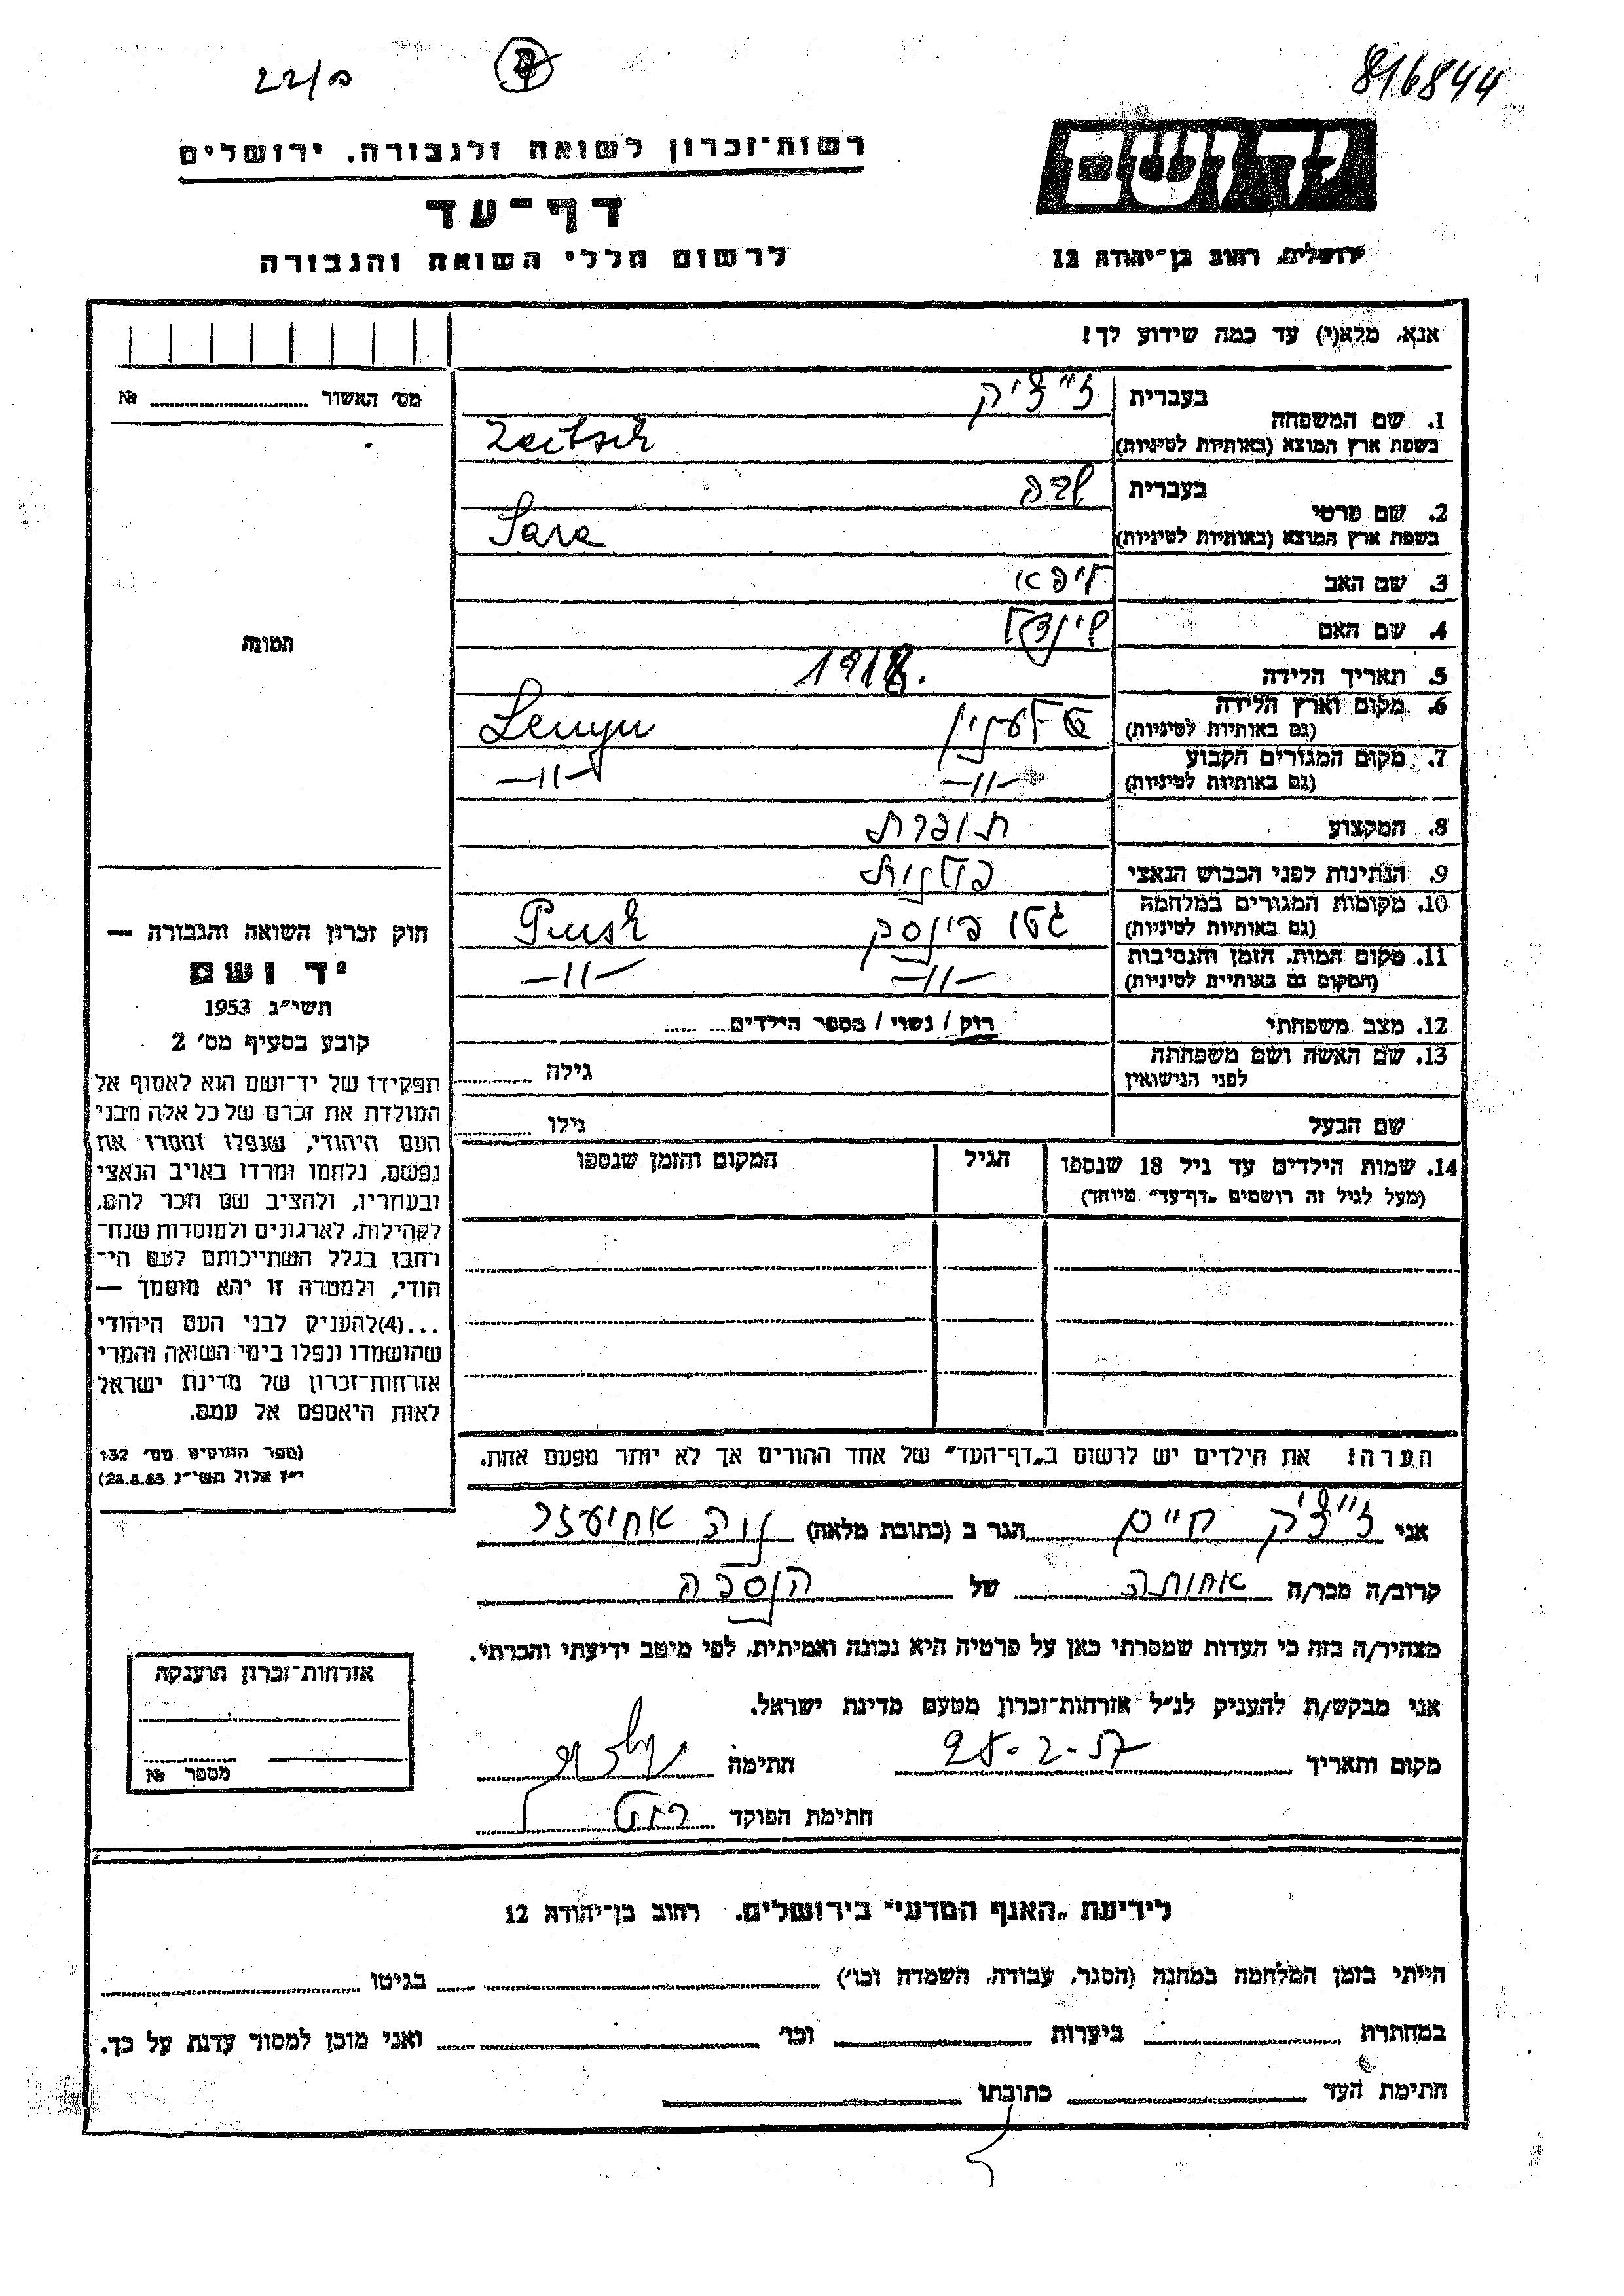 22/ס
816844
יד ושם
רשות־זכרון לשואה ולגבורה, ירושלים
דף־עד
לרשום חללי השואה והגבורה
ירושלים, רחוב בן־יהודה 12
אנא, מלא(י) עד כמה שידוע לך!
מס׳ האשור № 
1. שם המשפחה בעברית זייציק
בשפת ארץ המוצא (באותיות לטיניות) Zeitsik
2. שם פרטי בעברית שרה
בשפת ארץ המוצא (באותיות לטיניות) Sara
3. שם האב ליפא
4. שם האם שיינדל
5. תאריך הלידה 1918.
6. מקום וארץ הלידה
(גם באותיות לטיניות) Lenyn
7. מקום המגורים הקבוע —״— —״—
(גם באותיות לטיניות)
8. המקצוע תופרת
9. הנתינות לפני הכבוש הנאצי פולנית
10. מקומות המגורים במלחמה גטו פינסק Pinsk
(גם באותיות לטיניות)
11. מקום המות, הזמן והנסיבות —״— —״—
(המקום גם באותיות לטיניות)
12. מצב משפחתי רוק / נשוי / מספר הילדים
13. שם האשה ושם משפחתה גילה
לפני הנישואין
שם הבעל גילו
14. שמות הילדים עד גיל 18 שנספו הגיל המקום והזמן שנספו
(מעל לגיל זה רושמים „דף־עד״ מיוחד)
תמונה
חוק זכרון השואה והגבורה —
יד ושם
תשי״ג 1953
קובע בסעיף מס׳ 2
תפקידו של יד־ושם הוא לאסוף אל
המולדת את זכרם של כל אלה מבני
העם היהודי, שנפלו ומסרו את
נפשם, נלחמו ומרדו באויב הנאצי
ובעוזריו, ולהציב שם וזכר להם,
לקהילות, לארגונים ולמוסדות שנח־
רבו בגלל השתייכותם לעם הי־
הודי, ולמטרה זו יהא מוסמך —
...(4)להעניק לבני העם היהודי
שהושמדו ונפלו בימי השואה והמרי
אזרחות־זכרון של מדינת ישראל
לאות היאספם אל עמם.
(ספר החוקים מס׳ 132
י״ז אלול תשי״ג 28.8.53)
הערה! את הילדים יש לרשום ב„דף־העד״ של אחד ההורים אך לא יותר מפעם אחת.
אני זייציק חיים הגר ב (כתובת מלאה) נוה אחיעזר
קרוב/ה מכר/ה אחותה של הנספה
מצהיר/ה בזה כי העדות שמסרתי כאן על פרטיה היא נכונה ואמיתית, לפי מיטב ידיעתי והכרתי.
אני מבקש/ת להעניק לנ״ל אזרחות־זכרון מטעם מדינת ישראל.
מקום ותאריך 28-2-57 חתימה
חתימת הפוקד
אזרחות־זכרון הוענקה
מספר №
לידיעת „האגף המדעי״ בירושלים. רחוב בן־יהודה 12
הייתי בזמן המלחמה במחנה (הסגר, עבודה, השמדה וכו׳) בגיטו
במחתרת ביערות וכו׳ ואני מוכן למסור עדות על כך.
חתימת העד כתובתו